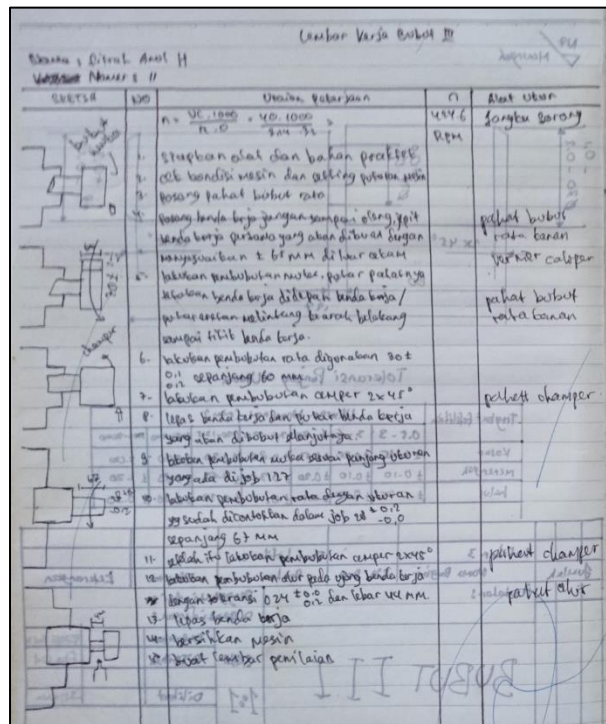 Lembar Kerja Bubut III
Nama : H
Nomer : 11
SKETSA NO Uraian Pekerjaan n Alat Ukur
n = VC.1000 = 40.1000 = Jangka Sorong
RPM
bubut muka
1. Siapkan alat dan bahan praktek
2. cek kondisi mesin dan setting putaran mesin
3. pasang pahat bubut rata
4. pasang benda kerja jangan sampai oleng, jepit pahat bubut
benda kerja yang akan dibuat dengan rata kanan
± 65 mm diluar
5. lakukan pembubutan muka, putar pahatnya
benda kerja didepan benda kerja / pahat bubut
melintang kearah belakang rata kanan
sampai titik benda kerja.
champer
6. lakukan pembubutan rata digunakan 30 ±
0,1
0,2 sepanjang 60 mm
7. lakukan pembubutan camper 2x45° pahat champer
8. lepas benda kerja dan putar benda kerja
yang akan dibubut selanjutnya
9. lakukan pembubutan muka sesuai panjang ukuran
yang ada di job 127
10. lakukan pembubutan rata dengan ukuran
yg sudah dicontohkan dalam job 28 + 0,2
-0,0
sepanjang 67 mm
11. setelah itu lakukan pembubutan camper 2x45° pahat champer
12. lakukan pembubutan alur pada ujung benda kerja
dengan toleransi 024 ± 0,0 dan lebar 44 mm. pahat alur
0,2
13. lepas benda kerja
14. bersihkan mesin
15. buat lembar penilaian